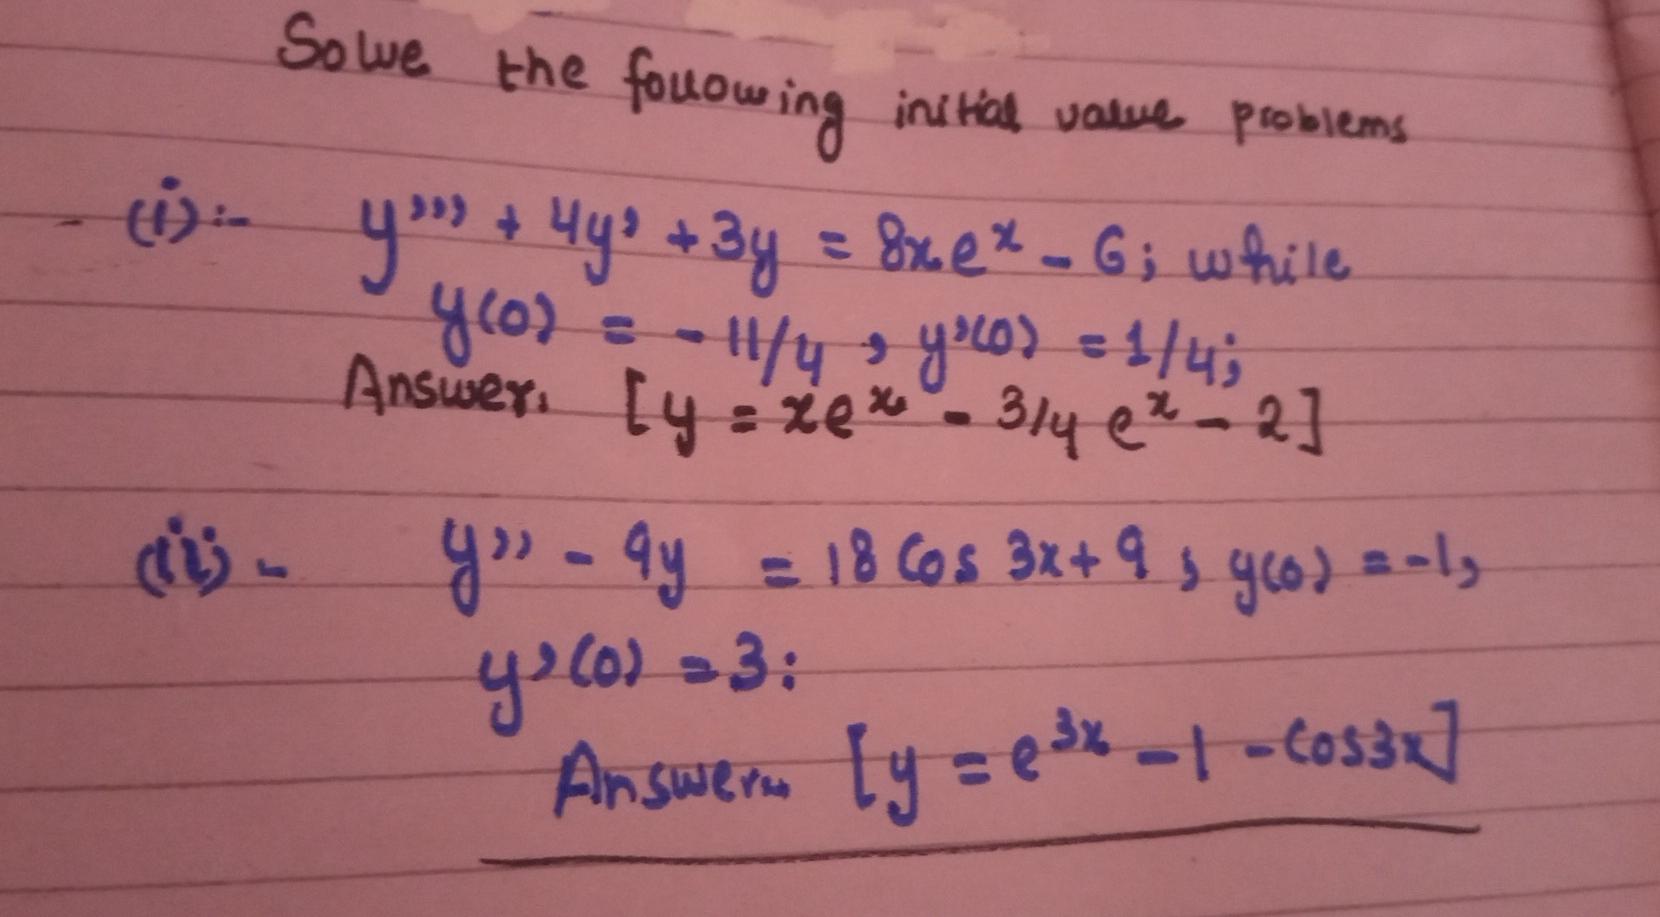 Solve the following initial value problems
(i):- y''' + 4y' + 3y = 8xe^x - 6; while
y(0) = - 11/4 , y'(0) = 1/4;
Answer. [y = xe^x - 3/4 e^x - 2]
(ii) - y'' - 9y = 18 Cos 3x + 9 ; y(0) = -1,
y'(0) = 3:
Answer [y = e^3x - 1 - Cos3x]